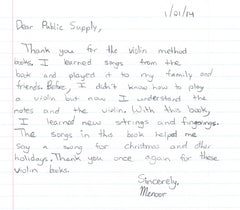 1/21/14
Dear Public Supply,
Thank you for the violin method
books. I learned songs from the
book and played it to my family and
friends. Before, I didn't know how to play
a violin but now I understand the
notes and the violin. With this book,
I learned new strings and fingerings.
The songs in this book helped me
say a song for christmas and other
holidays. Thank you once again for these
violin books.
Sincerely,